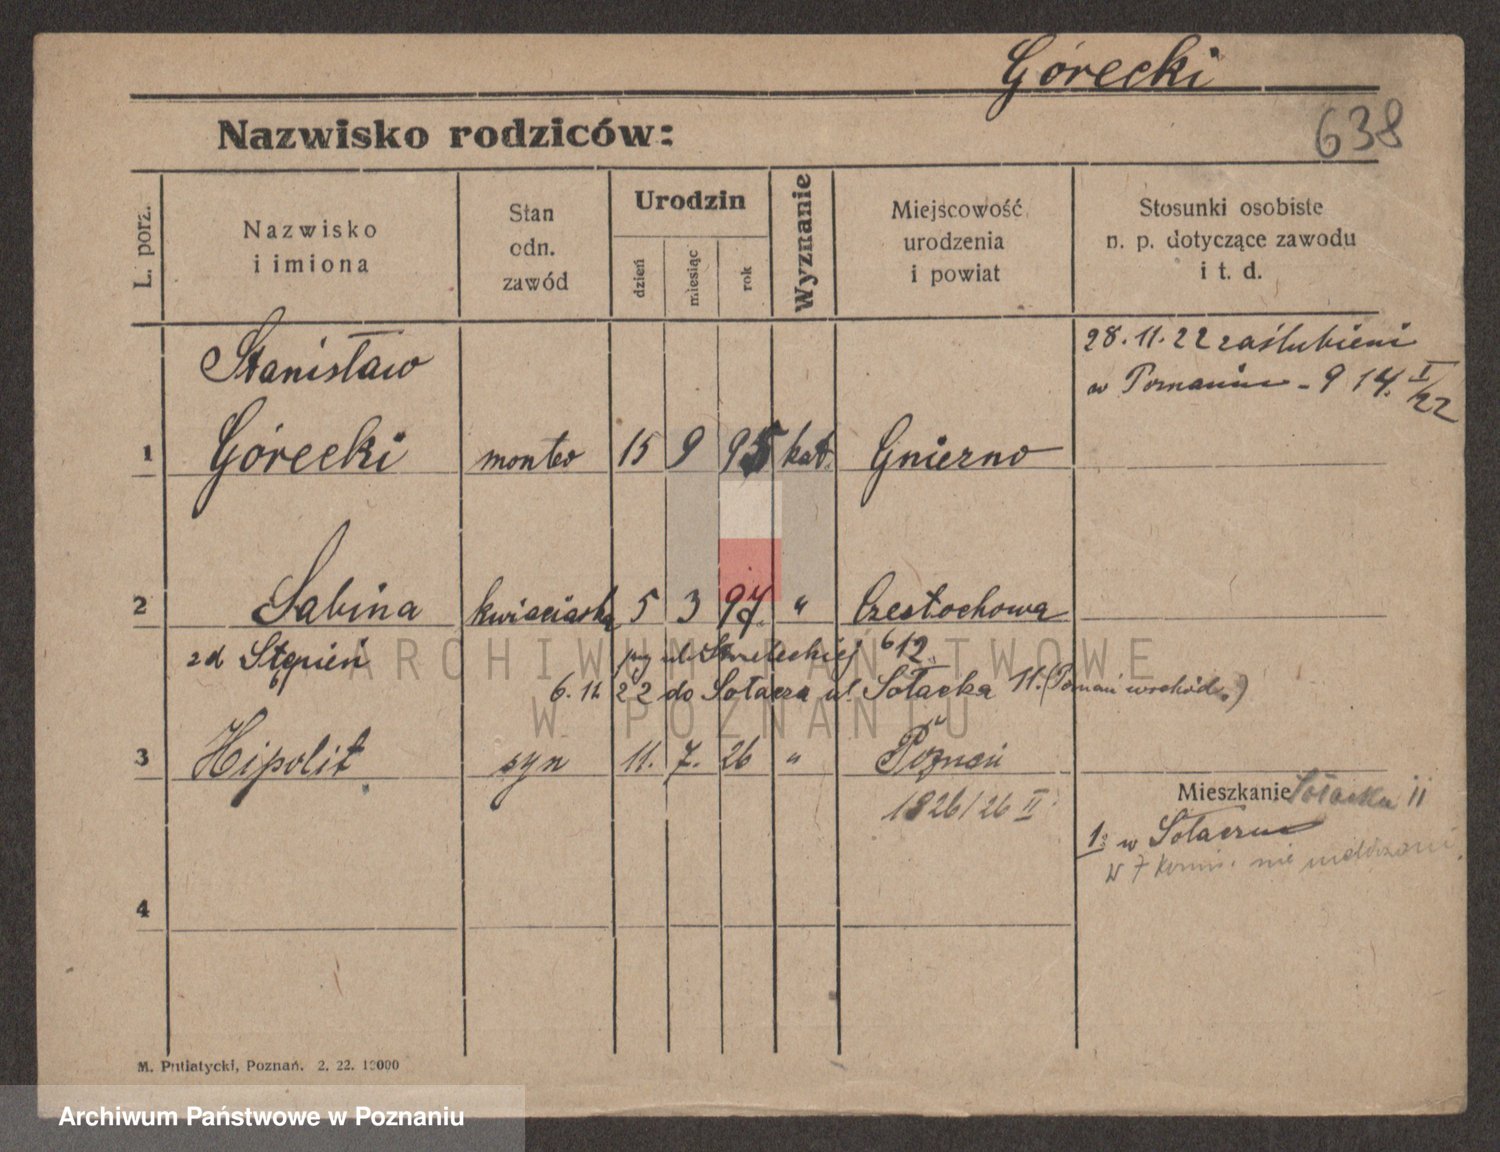 Górecki
638
Nazwisko rodziców:
L. porz.
Nazwisko
i imiona
Stan
odn.
zawód
Urodzin
dzień
miesiąc
rok
Wyznanie
Miejscowość
urodzenia
i powiat
Stosunki osobiste
n. p. dotyczące zawodu
i t. d.
28.11.22 zaślubieni
w Poznaniu - 914. I/22
Stanisław
1 Górecki monter 15 9 95 kat. Gniezno
2 Sabina kwiaciarka 5 3 97 " Częstochowa
zd Stępień
ul. Strzeleckiej 612
6.12 22 do Sołacza ul. Sołacka 11. (Poznań wschód.)
3 Hipolit syn 11. 7. 26 " Poznań
1826/26 II
Mieszkanie Sołacka 11
1: w Sołaczu
w 7 komis. nie
4
M. Putiatycki, Poznań. 2. 22. 10000
ARCHIWUM PAŃSTWOWE
W POZNANIU
Archiwum Państwowe w Poznaniu